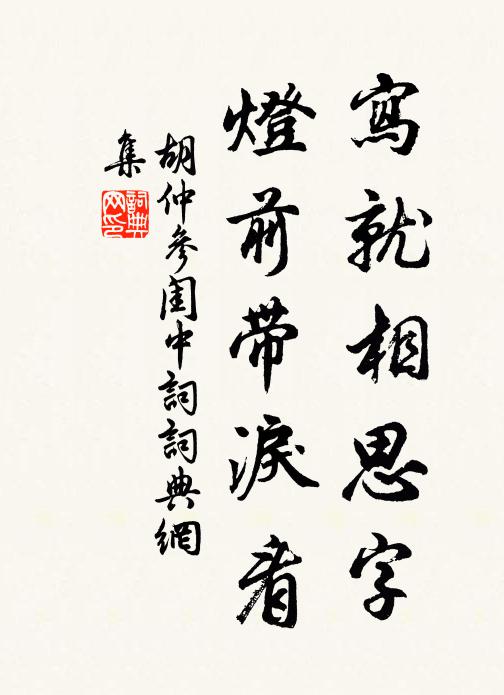 寫就相思字
燈前帶淚看
胡仲參閨中詞詞典網
集
詞典
网印